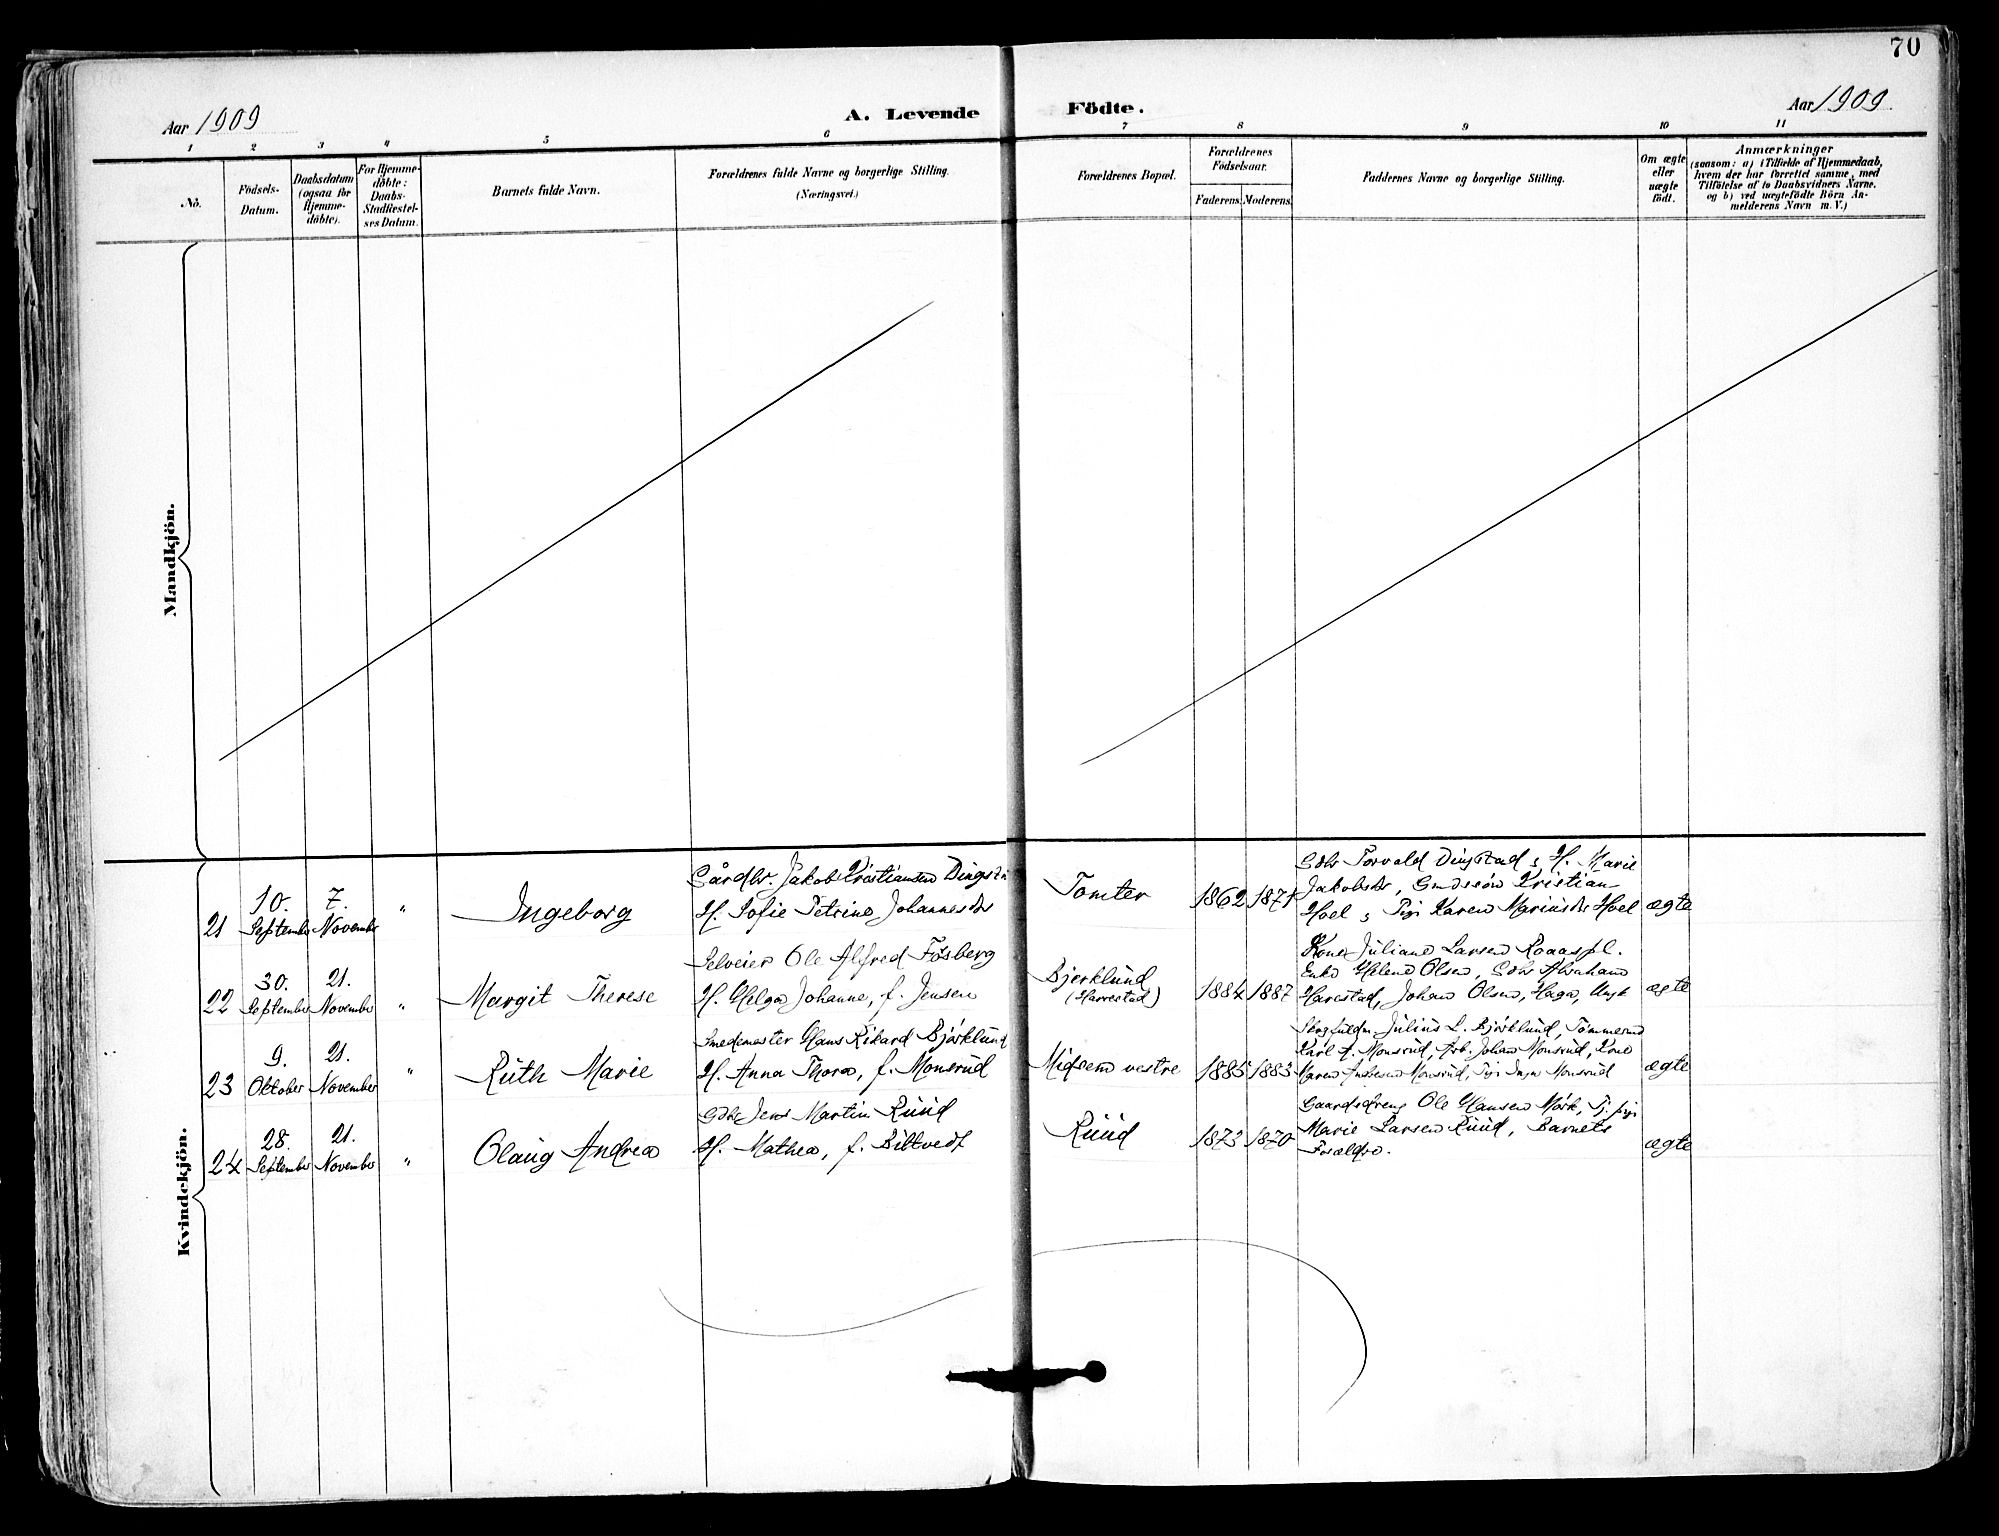 70
Aar 1909
A. Levende Födte.
Aar 1909
1 2 3 4 5 6 7 8 9 10 11
No.
Födsels-Datum.
Daabsdatum (ogsaa for Hjemme-döbte).
For Hjemme-döbte: Daabs-Stadfæstel-ses Datum.
Barnets fulde Navn.
Forældrenes fulde Navne og borgerlige Stilling.
(Næringsvei.)
Forældrenes Bopæl.
Forældrenes Födselsaar.
Faderens. Moderens.
Faddernes Navne og borgerlige Stilling.
Om ægte eller uægte födt.
Anmærkninger
(saasom: a) i Tilfælde af Hjemmedaab,
hvem der har forrettet samme, med
Tilföielse af to Daabsvidners Navne.
og b) ved uægtefödte Börn An-
melderens Navn m. V.)
Mandkjön.
Kvindekjön.
21
10. September
7. November
"
Ingeborg
Gårdbr. Jakob Kristiansen Dingst
H. Sofie Petrine Johannesdr
Tomter
1862 1871
Gdbr Torvald Dingstad & H. Marie
Jakobsdr, Gaardssøn Kristian
Hoel & Pige Karen Mariusdr Hoel
ægte
22
30. September
21. November
"
Margit Therese
Selveier Ole Alfred Fosberg
H. Helga Johanne, f. Jensen
Bjerklund
(Harestad)
1884 1887
Kone Juliane Larsen Raaaspl.
Enke Helene Olsen, Gdbr Abraham
Harestad, Johan Olsen, Haga, Ungk
ægte
23
9. Oktober
21. November
"
Ruth Marie
Smedemester Hans Rikard Björklund
H. Anna Thora, f. Monsrud
Midsem vestre
1885 1883
Julius L. Björklund, Tömmermd
Karl A. Monsrud, Arb. Johan Monsrud, Kone
Maren Andresen Monsrud, Pige Inga Monsrud
ægte
24
28. September
21. November
"
Olaug Andrea
Gdbr Jens Martin Ruud
H. Mathea, f. Biltvedt
Ruud
1873 1870
Gaardsdreng Ole Hansen Mörk, Tj. pige
Marie Larsen Ruud, Barnets
Forældre.
ægte